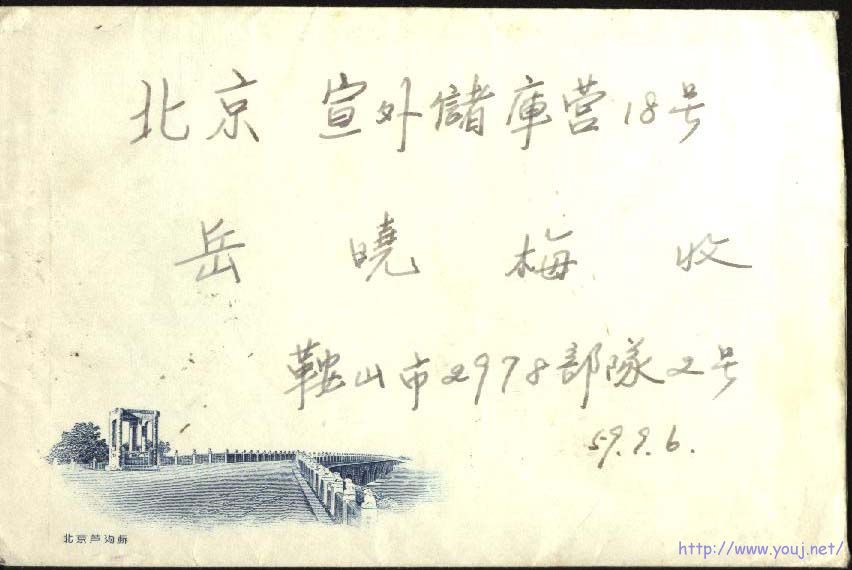 北京 宣外儲庫营18号
岳曉梅收
鞍山市2978部隊2号
59.9.6.
北京芦沟桥
http://www.youj.net/